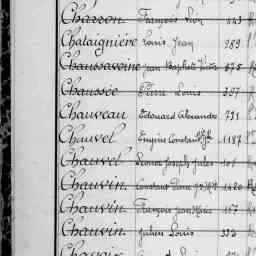 Charron François Léon 443
Chataignière Louis Jean 989
Chaussavoine Jean Baptiste 675
Chaussée Pierre Louis 397
Chauveau Edouard Alexandre 791
Chauvel Eugène Constant 1187
Chauvel Joseph Jules 101
Chauvin Constant Pierre 1420
Chauvin François Jean Marie 167
Chauvin Julien Louis 333